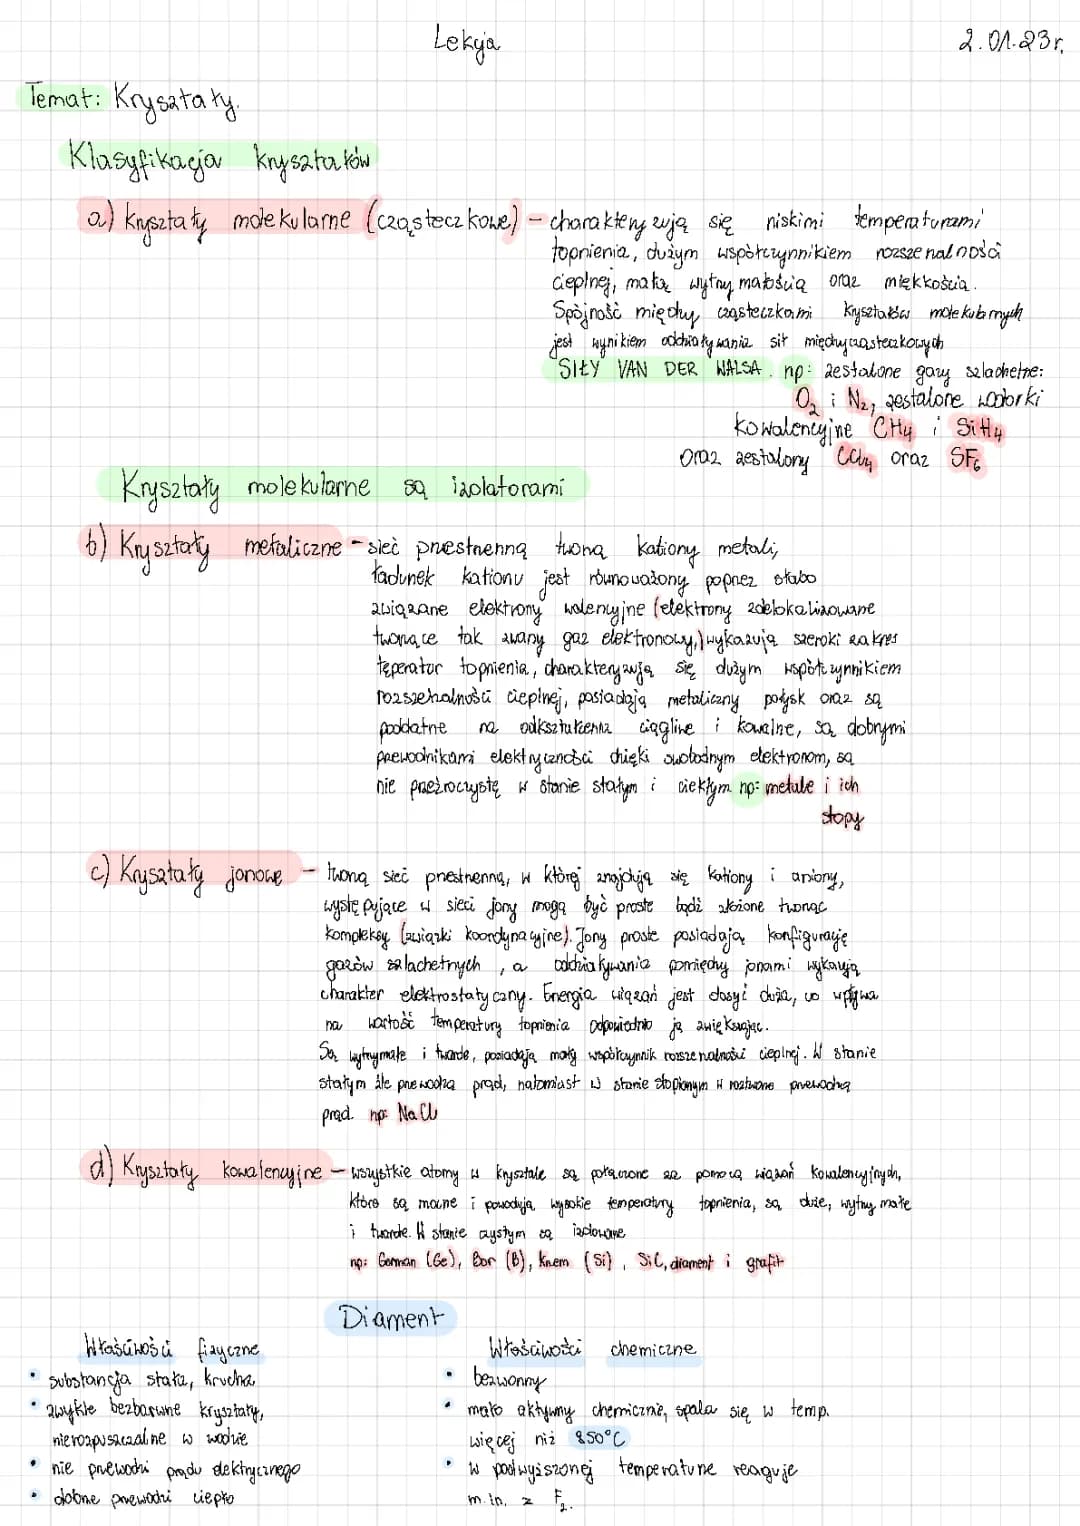 Lekcja
2.01.23r.
Temat: Kryształy.
Klasyfikacja kryształów
a) kryształy molekularne (cząsteczkowe) - charakteryzują się niskimi temperaturami
topnienia, dużym współczynnikiem rozszenalności
cieplnej, małą wytrzymałością oraz miękkością.
Spójność między cząsteczkami kryształów molekularnych
jest wynikiem oddziaływania sił międzycząsteczkowych
SIŁY VAN DER WALSA. np: zestalone gazy szlachetne:
O₂ i N₂, zestalone wodorki
kowalencyjne CH4 i SiH4
oraz zestalony CCl4 oraz SF₆
Kryształy molekularne są izolatorami
b) Kryształy metaliczne - sieć przestrzenną tworzą kationy metali,
ładunek kationu jest równoważony poprzez słabo
związane elektrony walencyjne (elektrony zdelokalizowane
tworzące tak zwany gaz elektronowy,) wykazują szeroki zakres
teperatur topnienia, charakteryzują się dużym współczynnikiem
rozszerzalności cieplnej, posiadają metaliczny połysk oraz są
poddatne na odkształcenia ciągliwe i kowalne, są dobrymi
przewodnikami elektryczności dzięki swobodnym elektronom, są
nie przeźroczystę w stanie stałym i ciekłym np: metale i ich
stopy
c) Kryształy jonowe - tworzą sieć przestrzenną, w której znajdują się kationy i aniony,
występujące w sieci jony mogą być proste bądź złożone tworząc
kompleksy (związki koordynacyjne). Jony proste posiadają konfigurację
gazów szlachetnych, a oddziaływania pomiędzy jonami wykazują
charakter elektrostatyczny. Energia wiązań jest dosyć duża, co wpływa
na wartość temperatury topnienia odpowiednio ją zwiększając.
Są wytrzymałe i twarde, posiadają mały współczynnik rozszerzalności cieplnej. W stanie
stałym źle przewodzą prąd, natomiast w stanie stopionym w roztworze przewodzą
prąd. np: NaCl
d) Kryształy kowalencyjne - wszystkie atomy w krysztale są połączone za pomocą wiązań kowalencyjnych,
które są mocne i powodują wysokie temperatury topnienia, są duże, wytrzymałe
i twarde. W stanie czystym są izolowane.
np: German (Ge), Bor (B), Krzem (Si), SiC, diament i grafit
Diament
Właściwości fizyczne
• substancja stała, krucha,
• zwykle bezbarwne kryształy,
nierozpuszczalne w wodzie
• nie przewodzi prądu elektrycznego
• dobrze przewodzi ciepło
Właściwości chemiczne
• bezwonny
• mało aktywny chemicznie, spala się w temp.
więcej niż 850°C
• w podwyższonej temperaturze reaguje
m.in. z F₂.